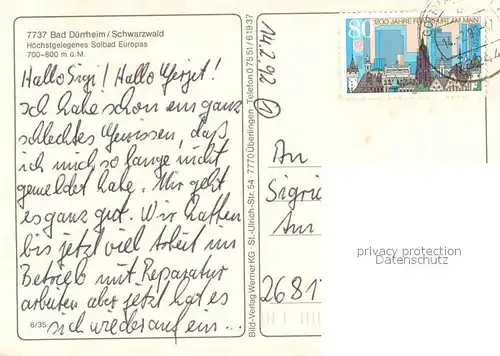 7737 Bad Dürrheim/Schwarzwald
Höchstgelegenes Solbad Europas
700–800 m ü. M.
Hallo Sigi! Hallo
Ich habe schon ein ganz
schlechtes Gewissen, daß
ich mich so lange nicht
gemeldet habe. Mir geht
es ganz gut. Wir hatten
bis jetzt viel Arbeit im
Betrieb mit Reparatur
arbeiten aber jetzt hat es
sich wieder auf ein...
6/35
Bild-Verlag Werner KG · St.-Ulrich-Str. 54 · 7770 Überlingen · Telefon 0 75 51/6 19 37
14.2.92
80
1200 JAHRE FRANKFURT AM MAIN
An
Sigri
Am
2681
privacy protection
Datenschutz